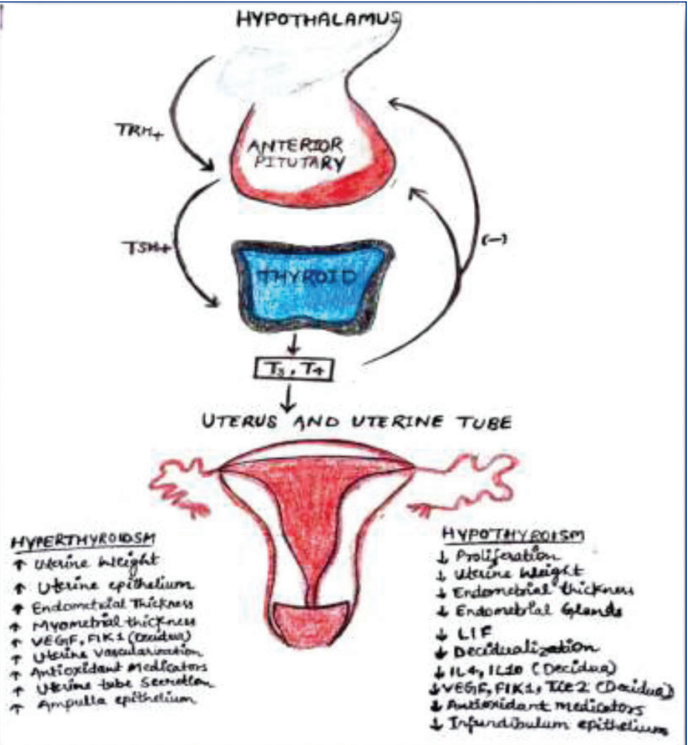 HYPOTHALAMUS
TRH+
ANTERIOR
PITUTARY
TSH+
(-)
THYROID
T3, T4
UTERUS AND UTERINE TUBE
HYPERTHYROIDSM
↑ Uterine Weight
↑ Uterine epithelium
↑ Endometrial Thickness
↑ Myometrial thickness
↑ VEGF, FlK1 (Decidua)
↑ Uterine vascularization
↑ Antioxidant Medicators
↑ Uterine tube Secretion
↑ Ampulla epithelium
HYPOTHYROISM
↓ Proliferation
↓ Uterine Weight
↓ Endometrial thickness
↓ Endometrial Glands
↓ LIF
↓ Decidualization
↓ IL4, IL10 (Decidua)
↓ VEGF, FlK1, Tie2 (Decidua)
↓ Antioxidant medicators
↓ Infundibulum epithelium